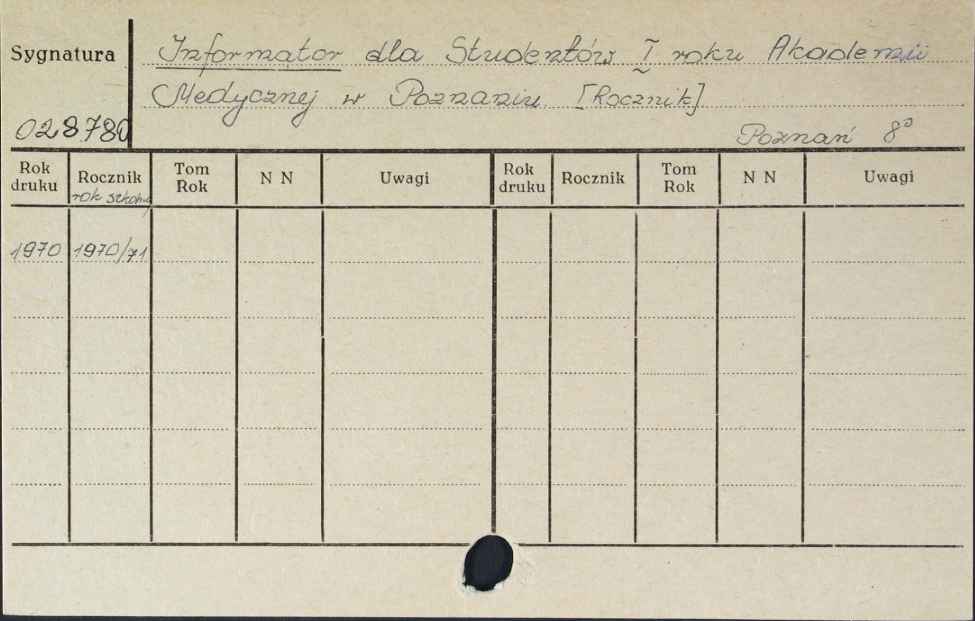 Sygnatura Informator dla Studentów I roku Akademii
Medycznej w Poznaniu [Rocznik]
028780 Poznań 8°
Rok druku Rocznik Tom Rok N N Uwagi Rok druku Rocznik Tom Rok N N Uwagi
rok szkolny
1970 1970/71